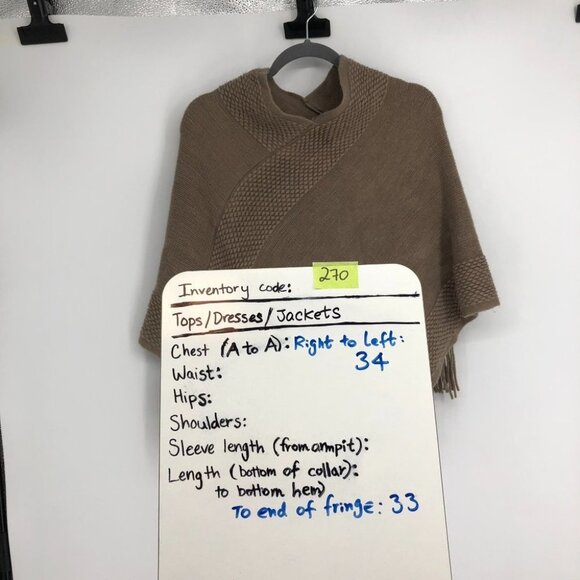 Inventory code: 270
Tops/Dresses/Jackets
Chest (A to A): Right to Left:
34
Waist:
Hips:
Shoulders:
Sleeve length (from armpit):
Length (bottom of collar):
to bottom hem)
To end of fringe: 33